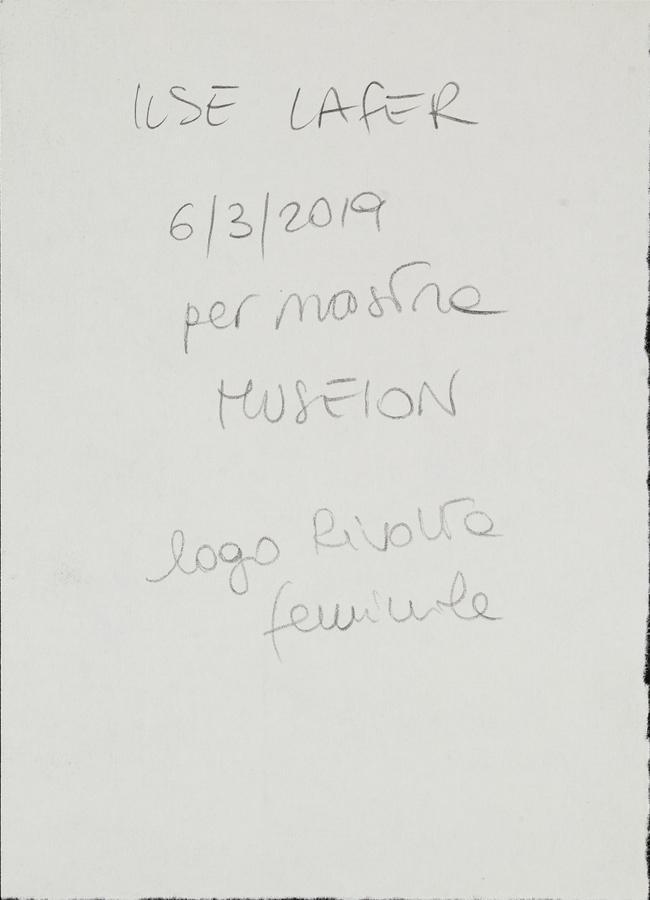 ILSE LAFER
6/3/2019
per mostra
MUSEION
logo Rivolta
femminile